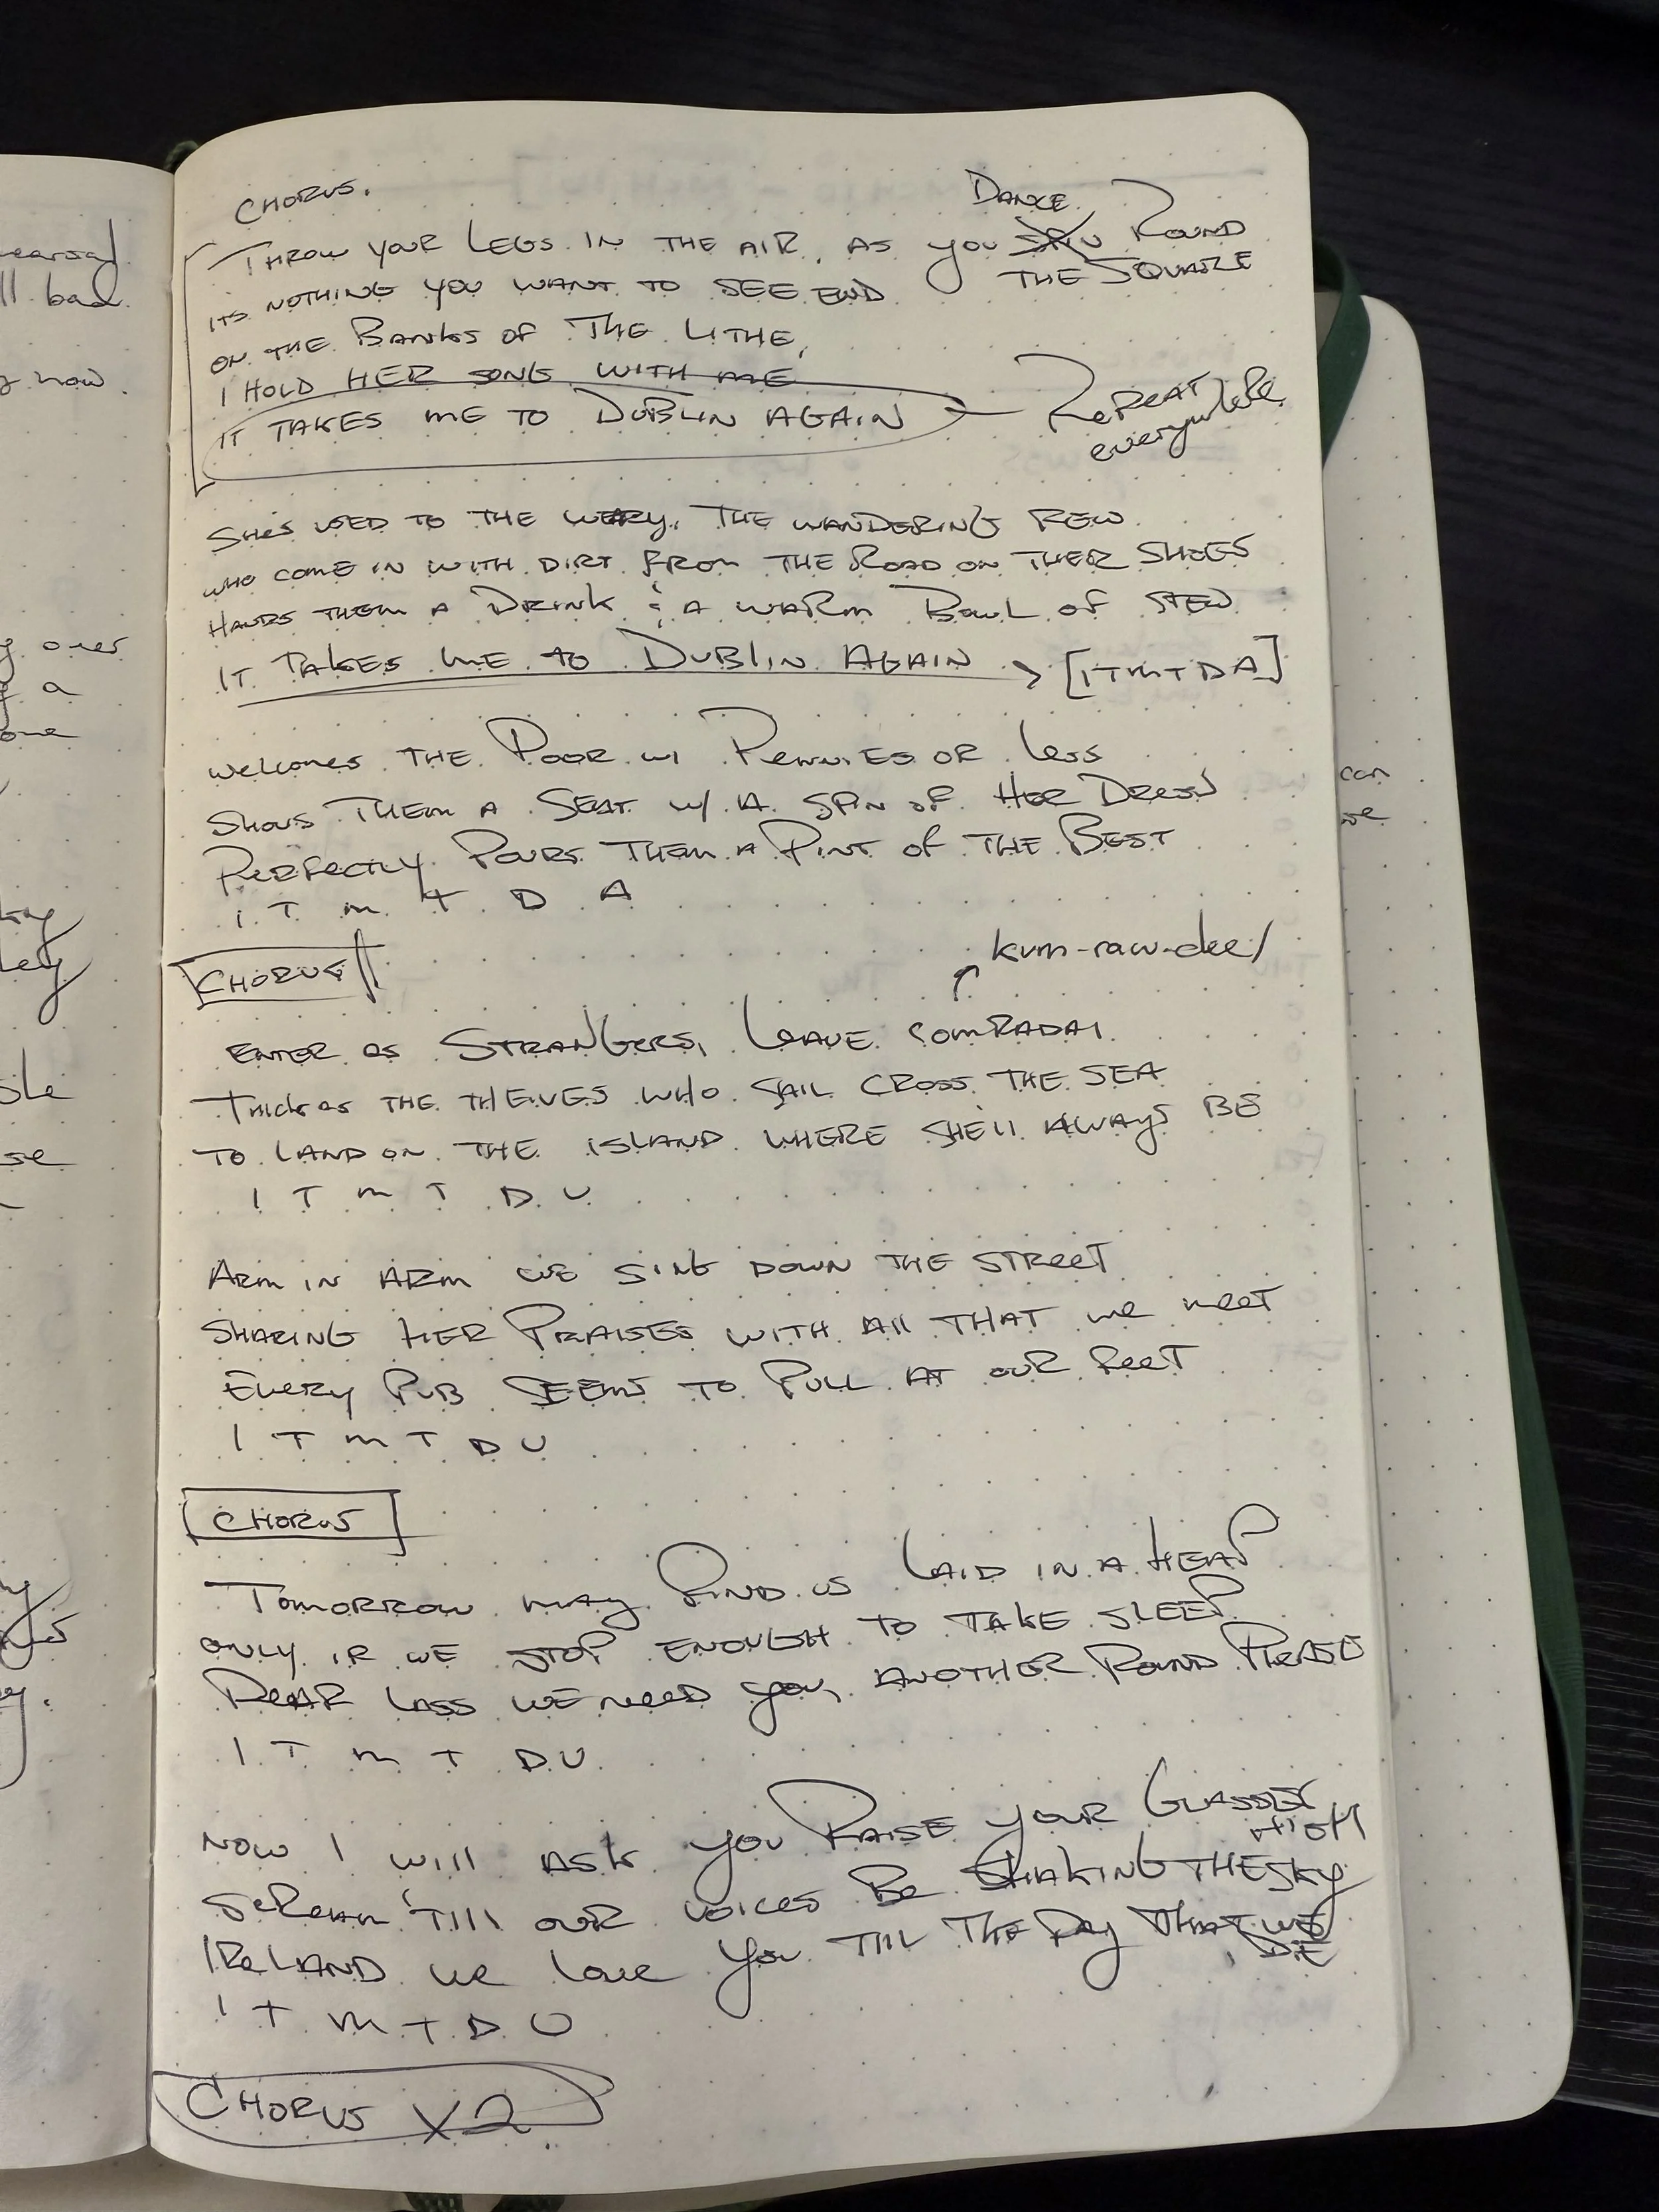 CHORUS.
DANCE
THROW YOUR LEGS IN THE AIR, AS YOU SPIN ROUND
THE SQUARE
ITS NOTHING YOU WANT TO SEE END
ON THE BANKS OF THE LITHE,
I HOLD HER SONG WITH ME
IT TAKES ME TO DUBLIN AGAIN
REPEAT
everywhere
SHE'S USED TO THE WEARY, THE WANDERING FEW
WHO COME IN WITH DIRT FROM THE ROAD ON THEIR SHOES
HANDS THEM A DRINK & A WARM BOWL OF STEW
IT TAKES ME TO DUBLIN AGAIN > [ITMTDA]
WELCOMES THE POOR W/ PENNIES OR LESS
SHOWS THEM A SEAT W/ A SPIN OF HER DRESS
PERFECTLY POURS THEM A PINT OF THE BEST
I T M T D A
CHORUS
kum-raw-dee/
ENTER AS STRANGERS, LEAVE COMRADAI
THICK AS THE THEIVES WHO SAIL CROSS THE SEA
TO LAND ON THE ISLAND WHERE SHE'LL ALWAYS BE
I T M T D U
ARM IN ARM WE SING DOWN THE STREET
SHARING HER PRAISES WITH All THAT we meet
EVERY PUB SEEMS TO PULL AT OUR FEET
I T M T D U
CHORUS
TOMORROW MAY FIND US LAID IN A HEAP
ONLY IF WE STOP ENOUGH TO TAKE SLEEP
DEAR LASS WE NEED YOU, ANOTHER ROUND PLEASE
I T M T D U
NOW I WILL ASK YOU RAISE YOUR GLASSES
HIGH
SCREAM 'TILL OUR VOICES BE SHAKING THE SKY
IRELAND WE LOVE YOU TILL THE DAY THAT WE
DIE
I T M T D U
CHORUS X2